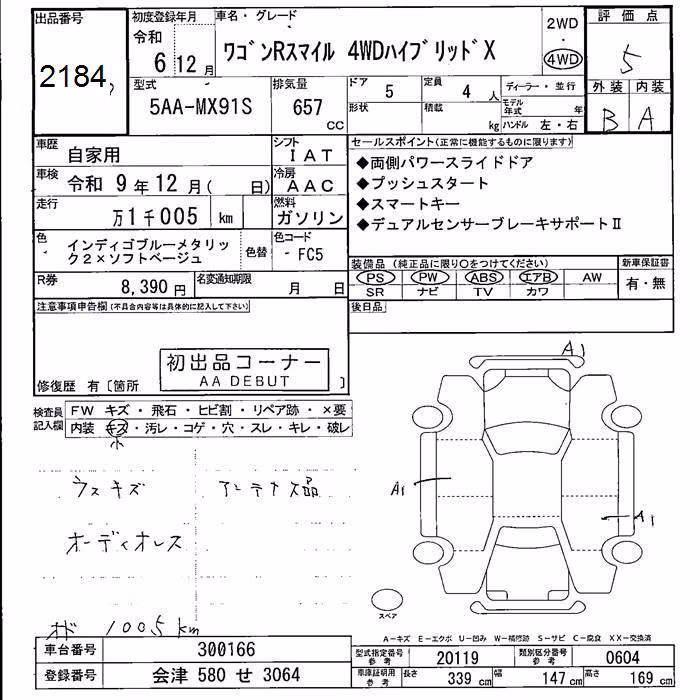 出品番号
2184
初度登録年月
令和
6 12月
車名・グレード
ワゴンRスマイル 4WDハイブリッドX
2WD
・
4WD
評価点
5
型式
5AA-MX91S
排気量
657
CC
ドア
5
定員
4 人
ディーラー・並行
形状
積載
kg
モデル年式
年
ハンドル 左・右
外装 内装
B A
車歴
自家用
シフト
IAT
車検
令和 9年12月( 日)
冷房
AAC
走行
万1千005 km
燃料
ガソリン
色
インディゴブルーメタリッ
ク2×ソフトベージュ
色替
色コード
- FC5
R券
8,390円
名変通知期限
月 日
セールスポイント(正常に機能するものに限ります)
◆両側パワースライドドア
◆プッシュスタート
◆スマートキー
◆デュアルセンサーブレーキサポートⅡ
装備品 (純正品に限り○をつけてください)
新車保証書
PS PW ABS エアB AW
有・無
SR ナビ TV カワ
後日品
注意事項申告欄(不具合内容等は具体的に記入して下さい)
初出品コーナー
AA DEBUT
修復歴 有〔箇所 〕
検査員
記入欄
FW キズ・飛石・ヒビ割・リペア跡・×要
内装 キズ・汚レ・コゲ・穴・スレ・キレ・破レ
小
ウスキズ
アンテナ欠品
オーディオレス
オド 1005km
A1
A1
A1
スペア
A-キズ E-エクボ U-凹み W-補修跡 S-サビ C-腐食 XX-交換済
車台番号
300166
登録番号
会津 580 せ 3064
型式指定番号
参考
20119
類別区分番号
参考
0604
車庫証明用
参考
長さ
339 cm
幅
147 cm
高さ
169 cm